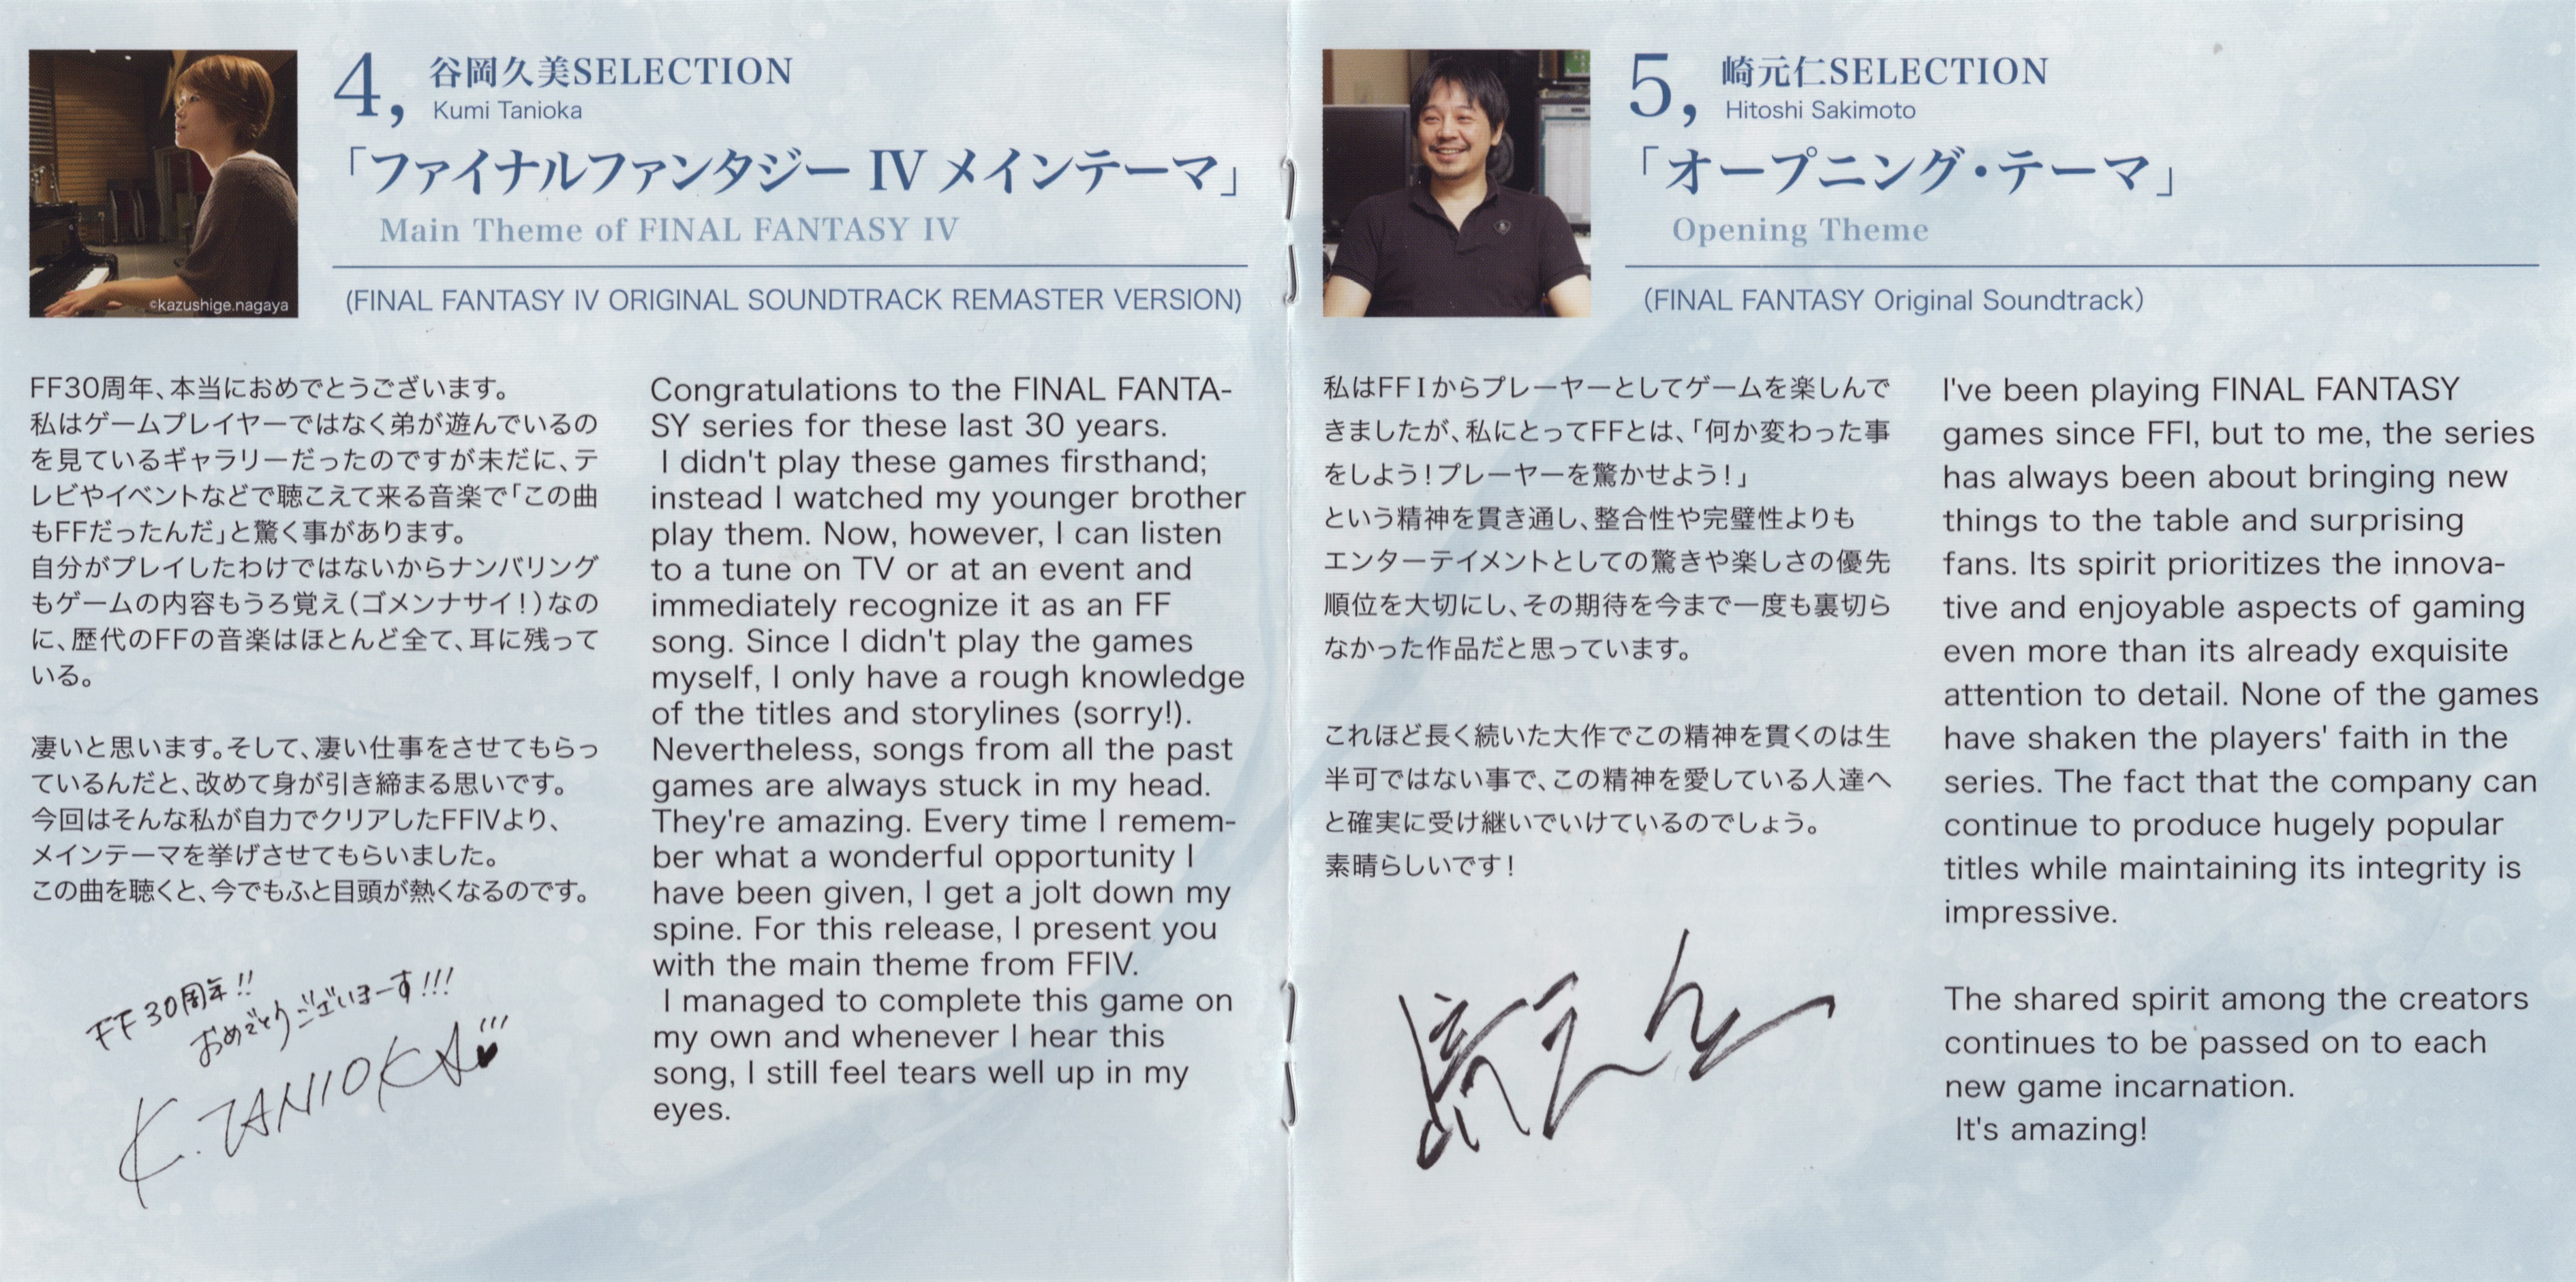 4, 谷岡久美SELECTION
Kumi Tanioka
「ファイナルファンタジー IV メインテーマ」
Main Theme of FINAL FANTASY IV
(FINAL FANTASY IV ORIGINAL SOUNDTRACK REMASTER VERSION)
©kazushige.nagaya
FF30周年、本当におめでとうございます。
私はゲームプレイヤーではなく弟が遊んでいるの
を見ているギャラリーだったのですが未だに、テ
レビやイベントなどで聴こえて来る音楽で「この曲
もFFだったんだ」と驚く事があります。
自分がプレイしたわけではないからナンバリング
もゲームの内容もうろ覚え（ゴメンナサイ！）なの
に、歴代のFFの音楽はほとんど全て、耳に残って
いる。
凄いと思います。そして、凄い仕事をさせてもらっ
ているんだと、改めて身が引き締まる思いです。
今回はそんな私が自力でクリアしたFFIVより、
メインテーマを挙げさせてもらいました。
この曲を聴くと、今でもふと目頭が熱くなるのです。
FF30周年!!
おめでとうございまーす!!!
K.TANIOKA
Congratulations to the FINAL FANTA-
SY series for these last 30 years.
I didn't play these games firsthand;
instead I watched my younger brother
play them. Now, however, I can listen
to a tune on TV or at an event and
immediately recognize it as an FF
song. Since I didn't play the games
myself, I only have a rough knowledge
of the titles and storylines (sorry!).
Nevertheless, songs from all the past
games are always stuck in my head.
They're amazing. Every time I remem-
ber what a wonderful opportunity I
have been given, I get a jolt down my
spine. For this release, I present you
with the main theme from FFIV.
I managed to complete this game on
my own and whenever I hear this
song, I still feel tears well up in my
eyes.
5, 崎元仁SELECTION
Hitoshi Sakimoto
「オープニング・テーマ」
Opening Theme
（FINAL FANTASY Original Soundtrack）
私はFFⅠからプレーヤーとしてゲームを楽しんで
きましたが、私にとってFFとは、「何か変わった事
をしよう！プレーヤーを驚かせよう！」
という精神を貫き通し、整合性や完璧性よりも
エンターテイメントとしての驚きや楽しさの優先
順位を大切にし、その期待を今まで一度も裏切ら
なかった作品だと思っています。
これほど長く続いた大作でこの精神を貫くのは生
半可ではない事で、この精神を愛している人達へ
と確実に受け継いでいけているのでしょう。
素晴らしいです！
崎元仁
I've been playing FINAL FANTASY
games since FFI, but to me, the series
has always been about bringing new
things to the table and surprising
fans. Its spirit prioritizes the innova-
tive and enjoyable aspects of gaming
even more than its already exquisite
attention to detail. None of the games
have shaken the players' faith in the
series. The fact that the company can
continue to produce hugely popular
titles while maintaining its integrity is
impressive.
The shared spirit among the creators
continues to be passed on to each
new game incarnation.
It's amazing!